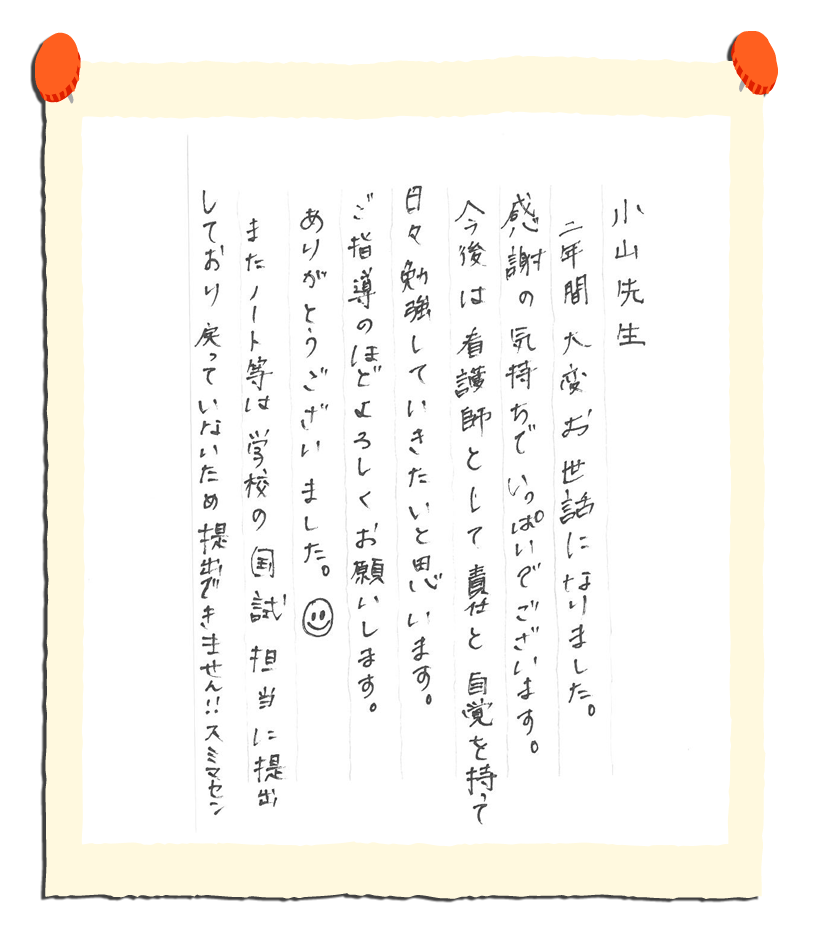 小山先生
二年間大変お世話になりました。
感謝の気持ちでいっぱいでございます。
今後は看護師として責任と自覚を持って
日々勉強していきたいと思います。
ご指導のほどよろしくお願いします。
ありがとうございました。
またノート等は学校の国試担当に提出
しており戻っていないため提出できません!!スミマセン